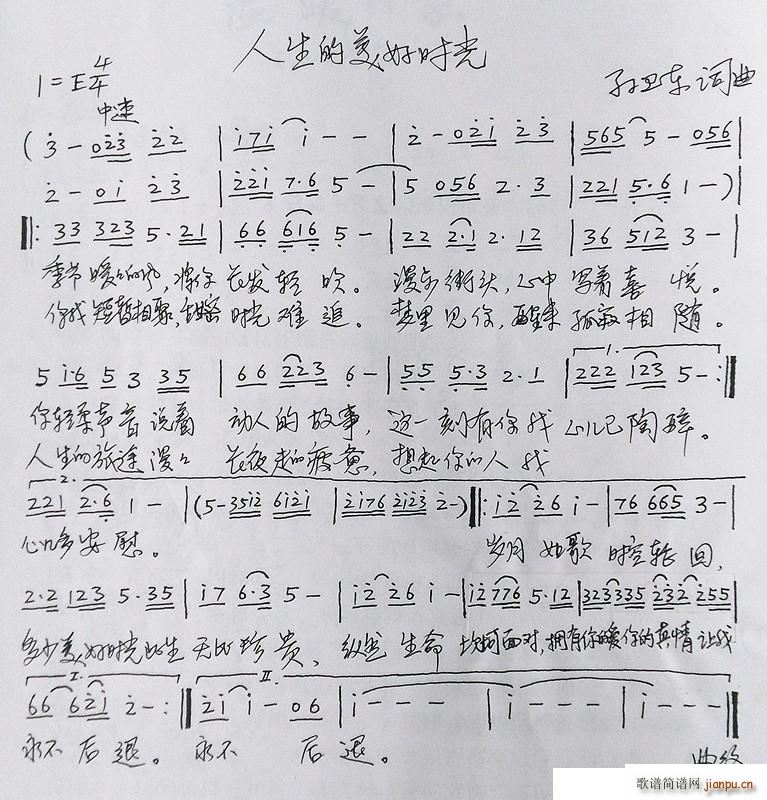 人生的美好时光
1=E 4/4
中速
孙卫东 词曲
( 3̇ - 0 2̇ 3̇ 2̇ 2̇ | i 7 i i - - | 2̇ - 0 2̇ i 2̇ 3̇ | 5 6 5 5 - 0 5 6
2̇ - 0 i 2̇ 3̇ | 2̇ 2̇ i 7·6 5 - | 5 0 5 6 2·3 | 2 2 1 5·6 1 - ) |
‖: 3 3 3 2 3 5·2 1 | 6 6 6 1 6 5 - | 2 2 2·1 2· 1 2 | 3 6 5 1 2 3 - |
季节暖暖的风, 将你长发轻吹。 漫步街头, 心中写着喜悦。
你我短暂相聚, 时光难追。 梦里见你, 醒来孤寂相随。
5 i·6 5 3 3 5 | 6 6 2 2 3 6 - | 5 5 5·3 2·1 | 1. 2 2 2 1 2 3 5 - :‖
你轻柔声音说着 动人的故事, 这一刻有你我 心儿已陶醉。
人生的旅途漫漫 长夜走的疲惫, 想起你的人我
2. 2 2 1 2·6 1 - | ( 5 - 3 5 i 2̇ 6 i 2̇ i | 2̇ i 7 6 2̇ i 2̇ 3̇ 2̇ - ) ‖: i 2̇ 2̇ 6 i - | 7 6 6 6 5 3 - |
心儿多安慰。 岁月如歌 时空轮回,
2·2 1 2 3 5·3 5 | i 7 6·3 5 - | i 2̇ 2̇ 6 i - | i 2̇ 7 7 6 5·1 2 | 3 2 3 3 3 5 2̇ 3̇ 2̇ 2̇ 5 5 |
多少美好时光此生 无比珍贵, 纵然生命 坎坷面对, 拥有你的暖你的真情让我
I. 6 6 6 2̇ i 2̇ - :‖ II. 2̇ i i - 0 6 | i - - - | i - - - | i - - - ‖
永不后退。 永不 后退。
曲终
歌谱简谱网
jianpu.cn